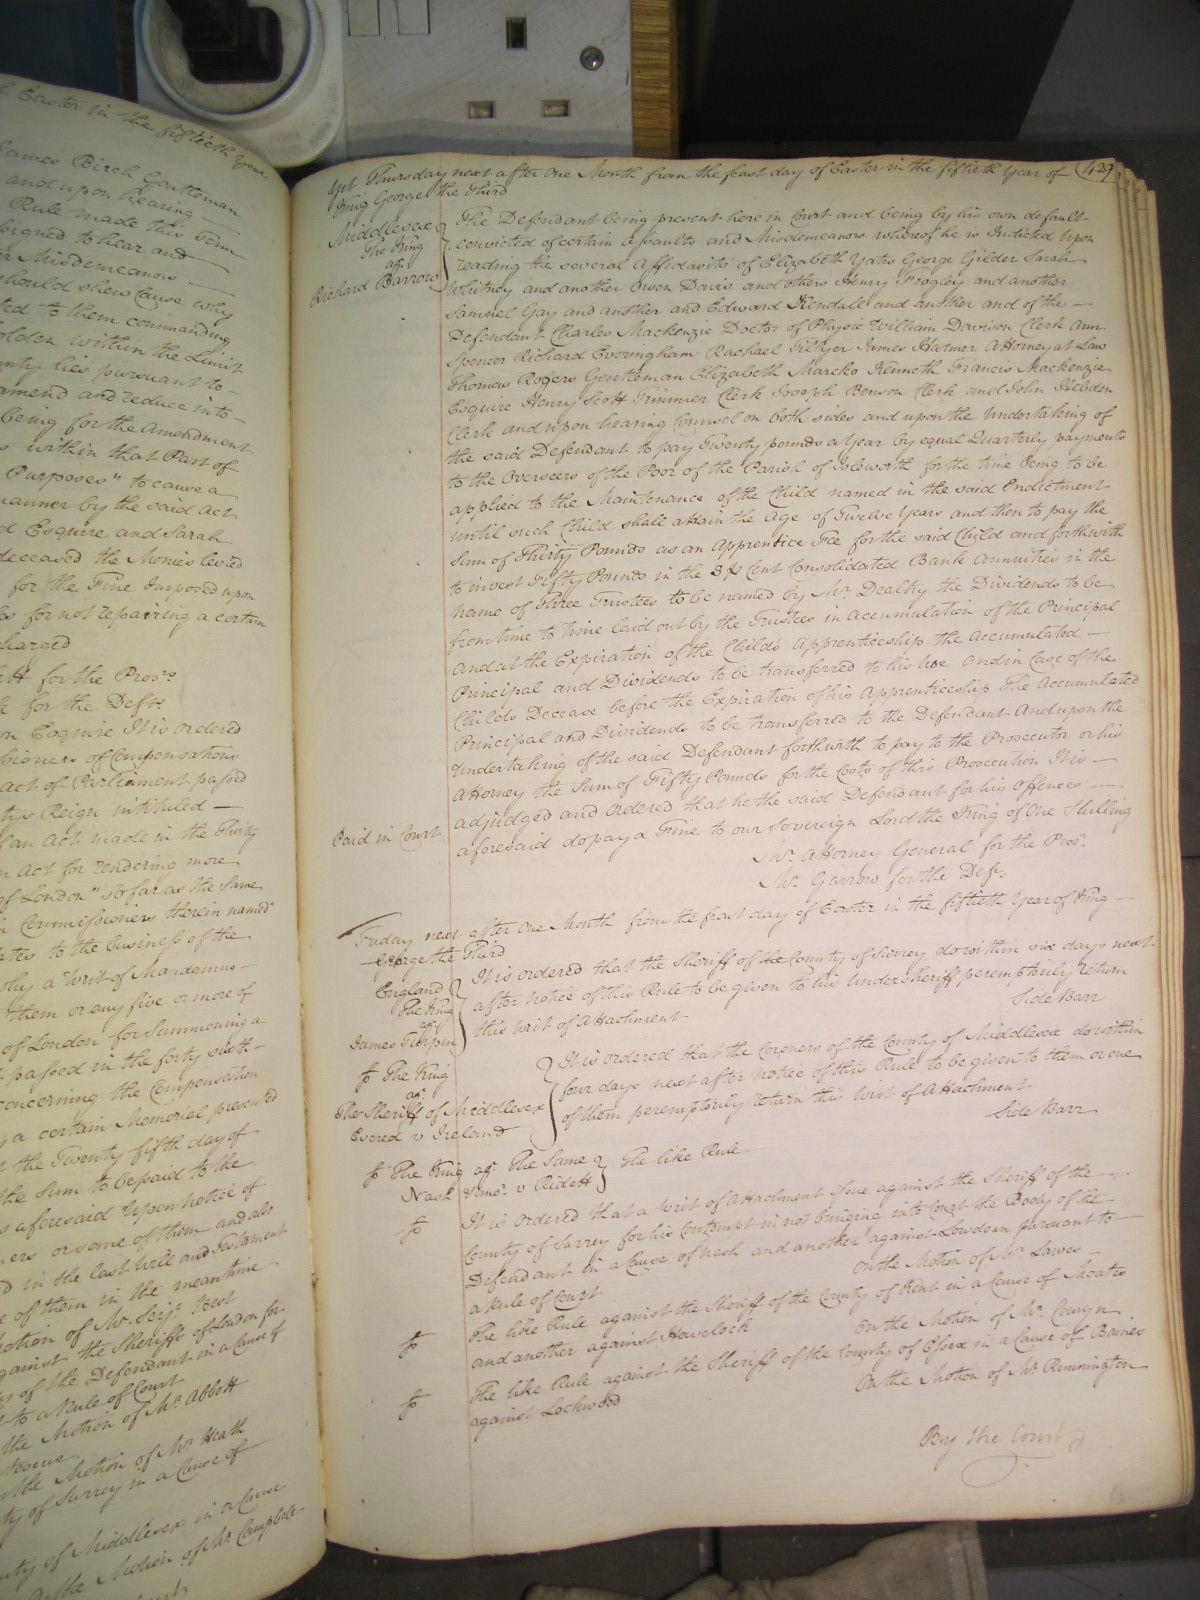 t Easter in the fiftieth year
James Birch Gentleman
and upon hearing
Rule made this Term
signed to hear and
Misdemeanors
should shew cause why
ted to them commanding
olden within the Limit
nty lies pursuant to
amend and reduce into
being for the Amendment
within that Part of
Purposes" to cause a
manner by the said Act
d Esquire and Sarah
deceased the Monies levied
for the Fine Imposed upon
for not repairing a certain
charged
for the Prosr.
for the Deft.
on Esquire It is ordered
ssioners of Compensations
Act of Parliament passed
tys Reign intituled
f an Act made in the Thirty
n Act for rendering more
of London" so far as the same
Commissioners therein named
ates to the business of the
a Writ of Mandamus
them or any five or more of
of London for Summoning a
passed in the forty sixth
concerning the Compensation
y a certain Memorial presented
the Twenty fifth day of
the Sum to be paid to the
s aforesaid Upon notice of
ners or some of them and also
d in the last Will and Testament
e of them in the meantime
Motion of Mr. Serjt. Best
gainst the Sheriffs of London for
y of the Defendant in a Cause of
to a Rule of Court
the Motion of Mr. Abbott
the Motion of Mr. Heath
ty of Surrey in a Cause of
unty of Middlesex in a Cause
the Motion of Mr. Campbell
Yet Thursday next after One Month from the feast day of Easter in the fiftieth Year of 429
King George the Third
Middlesex
The King
agt.
Richard Barrow
The Defendant being present here in Court and being by his own default
convicted of certain assaults and Misdemeanors whereof he is Indicted Upon
reading the several Affidavits of Elizabeth Yates George Gilder Sarah
Whitney and another Owen Davis and others Henry Frogley and another
Samuel Gay and another and Edward Kendall and another and of the
Defendant Charles Mackenzie Doctor of Physic William Davison Clerk Ann
Spencer Richard Everingham Rachael Tillyer James Harmer Attorney at Law
Thomas Rogers Gentleman Elizabeth Marcko Kenneth Francis Mackenzie
Esquire Henry Scott Trimmer Clerk Joseph Benson Clerk and John Hebden
Clerk and upon hearing Counsel on both sides and upon the Undertaking of
the said Defendant to pay Twenty pounds a Year by equal Quarterly payments
to the Overseers of the Poor of the Parish of Isleworth for the time being to be
applied to the Maintenance of the Child named in the said Indictment
until such Child shall attain the Age of Twelve Years and then to pay the
Sum of Thirty Pounds as an Apprentice Fee for the said Child and forthwith
to invest Fifty Pounds in the 3 P Cent Consolidated Bank Annuities in the
name of Three Trustees to be named by Mr. Dealtry the Dividends to be
from time to time laid out by the Trustees in Accumulation of the Principal
And at the Expiration of the Child's Apprenticeship the Accumulated
Principal and Dividends to be transferred to his Use And in Case of the
Childs Decease before the Expiration of his Apprenticeship The Accumulated
Principal and Dividends to be transferred to the Defendant And upon the
Undertaking of the said Defendant forthwith to pay to the Prosecutor or his
Attorney the Sum of Fifty Pounds for the Costs of this Prosecution It is
adjudged and Ordered that he the said Defendant for his offences
Paid in Court
aforesaid do pay a Fine to our Sovereign Lord the King of One Shilling
Mr. Attorney General for the Prosr.
Mr. Garrow for the Deft.
Friday next after One Month from the feast day of Easter in the fiftieth Year of King
George the Third
England
The King
agt.
James Turpin
It is ordered that the Sheriff of the County of Surrey do within six days next
after notice of this Rule to be given to his Undersheriff peremptorily return
this Writ of Attachment
Side Barr
The King
agt.
The Sheriff of Middlesex
Evered v Ireland
It is ordered that the Coroners of the County of Middlesex do within
four days next after notice of this Rule to be given to them or one
of them peremptorily return this Writ of Attachment
Side Barr
The King agt. The Same
Nash & anor. v Ridett
The like Rule
It is ordered that a writ of Attachment Issue against the Sheriff of the
County of Surrey for his Contempt in not bringing into Court the Body of the
Defendant in a Cause of Nash and another against Lowdern pursuant to
a Rule of Court
On the Motion of Mr. Lawes
The like Rule against the Sheriff of the County of Kent in a Cause of Moates
and another against Havelock
On the Motion of Mr. Comyn
The like Rule against the Sheriff of the County of Essex in a Cause of Baines
against Lockwood
On the Motion of Mr. Runnington
By the Court